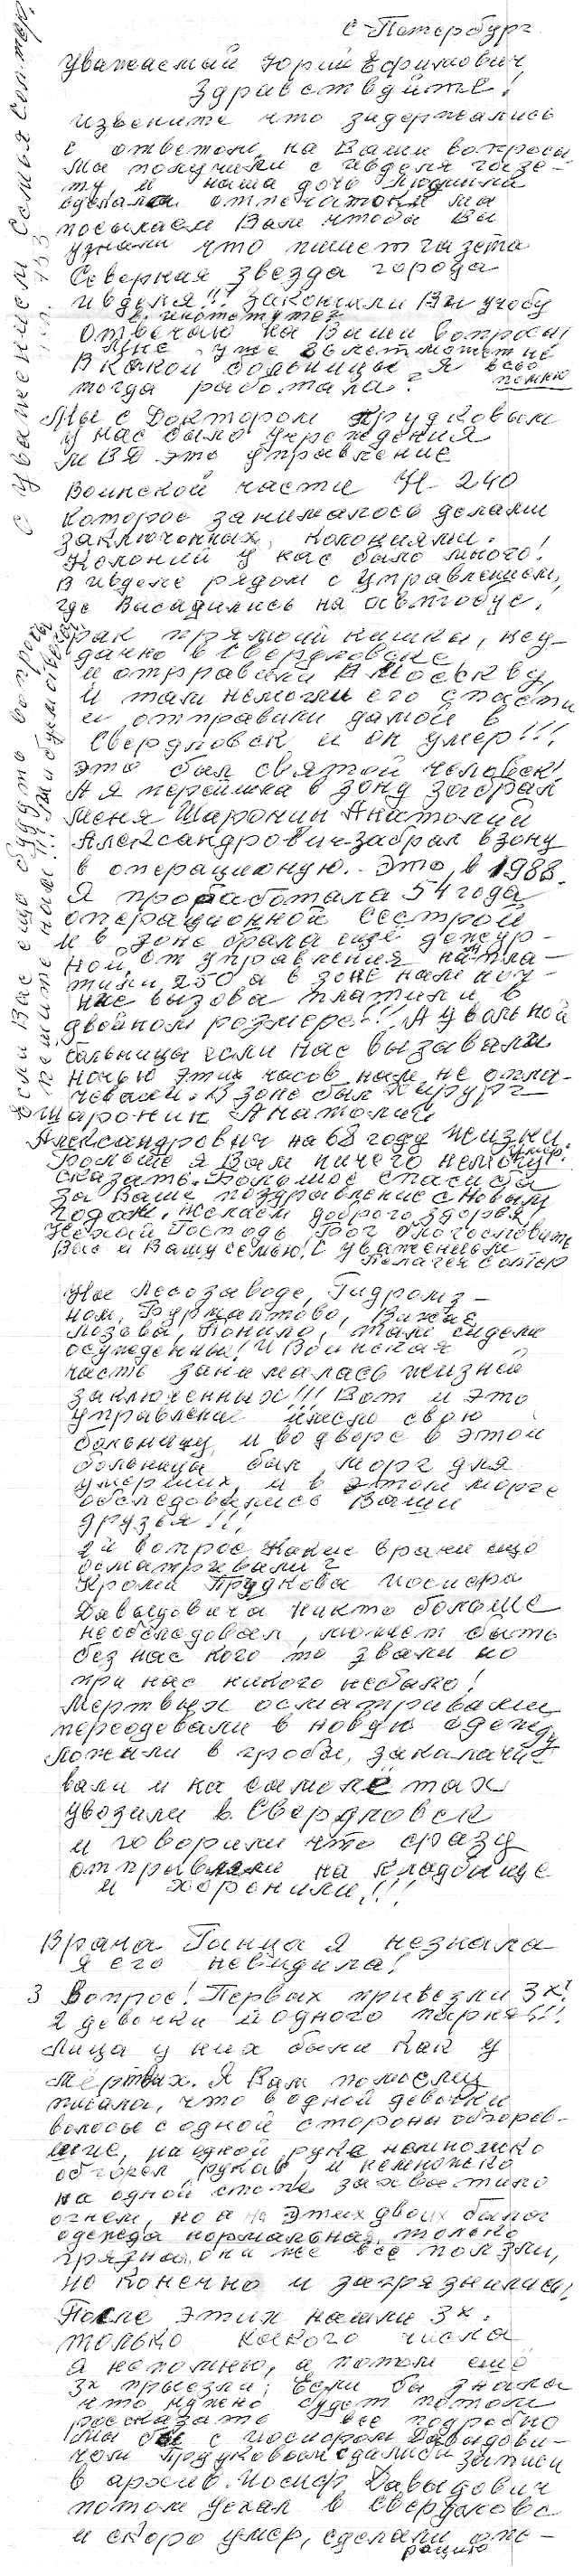 С-Петербург
Уважаемый Юрий Ефимович,
Здравствуйте!
извените что задержались
с ответом на Ваши вопросы
Мы получили с ивделя газе-
ту, и наша дочь Людмила
сделала отпечатоки мы
посылаем Вам чтобы Вы
узнали что пишет газета
Северная звезда города
ивделя!!! Закончили Вы учобу
в институте?
отвечаю на Ваши вопросы
Мне уже 80 лет может не
В какой больницы я всё
тогда работала? помню
Мы с Доктором Прудковым
у нас было учреждения
МВД это управление
Воинской части Н-240
которое занималось делами
заключонных, колониями.
Колоний у нас было много!
В ивделе рядом с Управлением,
где Висадились на автобус,
рак прямой кишки, неу-
дачно в Свердловске
и отправили в Москву,
и там немогли его спасти
и отправили дамой в
Свердловск и он умер!!!
это был святой человек!
А я перешла в зону забрал
меня Шаронин Анатолий
Александрович-забрал в зону
в операционую. Это в 1988.
Я проработала 54 года
операционной сестрой
и в зоне брала ещё дежур-
ной, от управления пла-
тили 250 а в зоне нам ноч-
ные вызова платили в
двойном розмере!!! А у вольной
больницы если нас вызывали
ночью этих часов нам не опла-
чевали. В зоне был хирург
Шаронин Анатолий
Александрович на 68 году жизни умер.
Больше я Вам ничего немогу
сказать. Большое спасибо
за Ваше поздравление с Новым
годом, желаем доброго здоровя
Нехай Господь Бог благословить
Вас и Вашу семью! С уважением
Пелагея Солтер
На Лесозаводе, Гидролиз-
ном, Бурмантово, Вижае
Лозьва, Понило, там сидели
осужденны! И Воинская
часть занималась жизней
заключенных!!! Вот и это
управление имели свою
больницу и во дворе в этой
больницы был морг для
умерших, и в этом морге
обследовались Ваши
друзья!!!
2й вопрос Какие врачи ещё
осматривали?
Кроми Прудкова Иосифа
Давыдовича никто больше
необследовал, может быть
без нас кого то звали но
при нас никого небыло!
Мертвых осматривали
переодевали в новую одежду
ложили в гробы, заколачи
вали и на самолётах
увозили в Свердловск
и говорили что сразу
отправляли на кладбище
и хоронили!!!
Врача Ганца я незнала
я его невидила!
3 Вопрос! Первых привезли 3х!
2 девочки и одного парня!!!
Лица у них были как у
мёртвых. Я Вам помоему
писала, что в одной девочки
волосы с одной стороны обгорев-
шие, на одной рука немножко
обгорел рукав, и немножко
на одной стопе захватило
огнем, но а на этих двоих была
одежда нормальная, только
грязная, они же все ползли,
но конечно и загрязнились!
После этих нашли 3х.
только какого числа
я непомню, а потом ещё
3х привезли, если бы знали
что нужно будет потом
рассказать все подробно
мы бы с Иосифом Давыдови-
чом Прудковым сделали записи
в архив. Иосиф Давыдович
потом уехал в Свердловск
и скоро умер, сделали опе-
рацию
Если Вас ещо будуть вопросы
пешите нам!!! Мы будем ответ
С уважением семья Солтер.